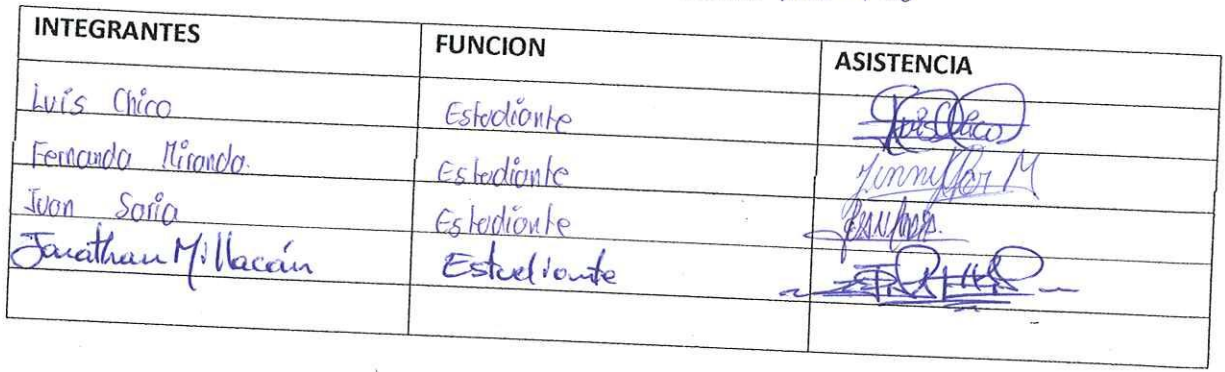 INTEGRANTES FUNCION ASISTENCIA
Luis Chico Estudiante Luis Chico
Fernanda Miranda. Estudiante Jenniffer M
Juan Soria Estudiante
Jonathan Millacán Estudiante